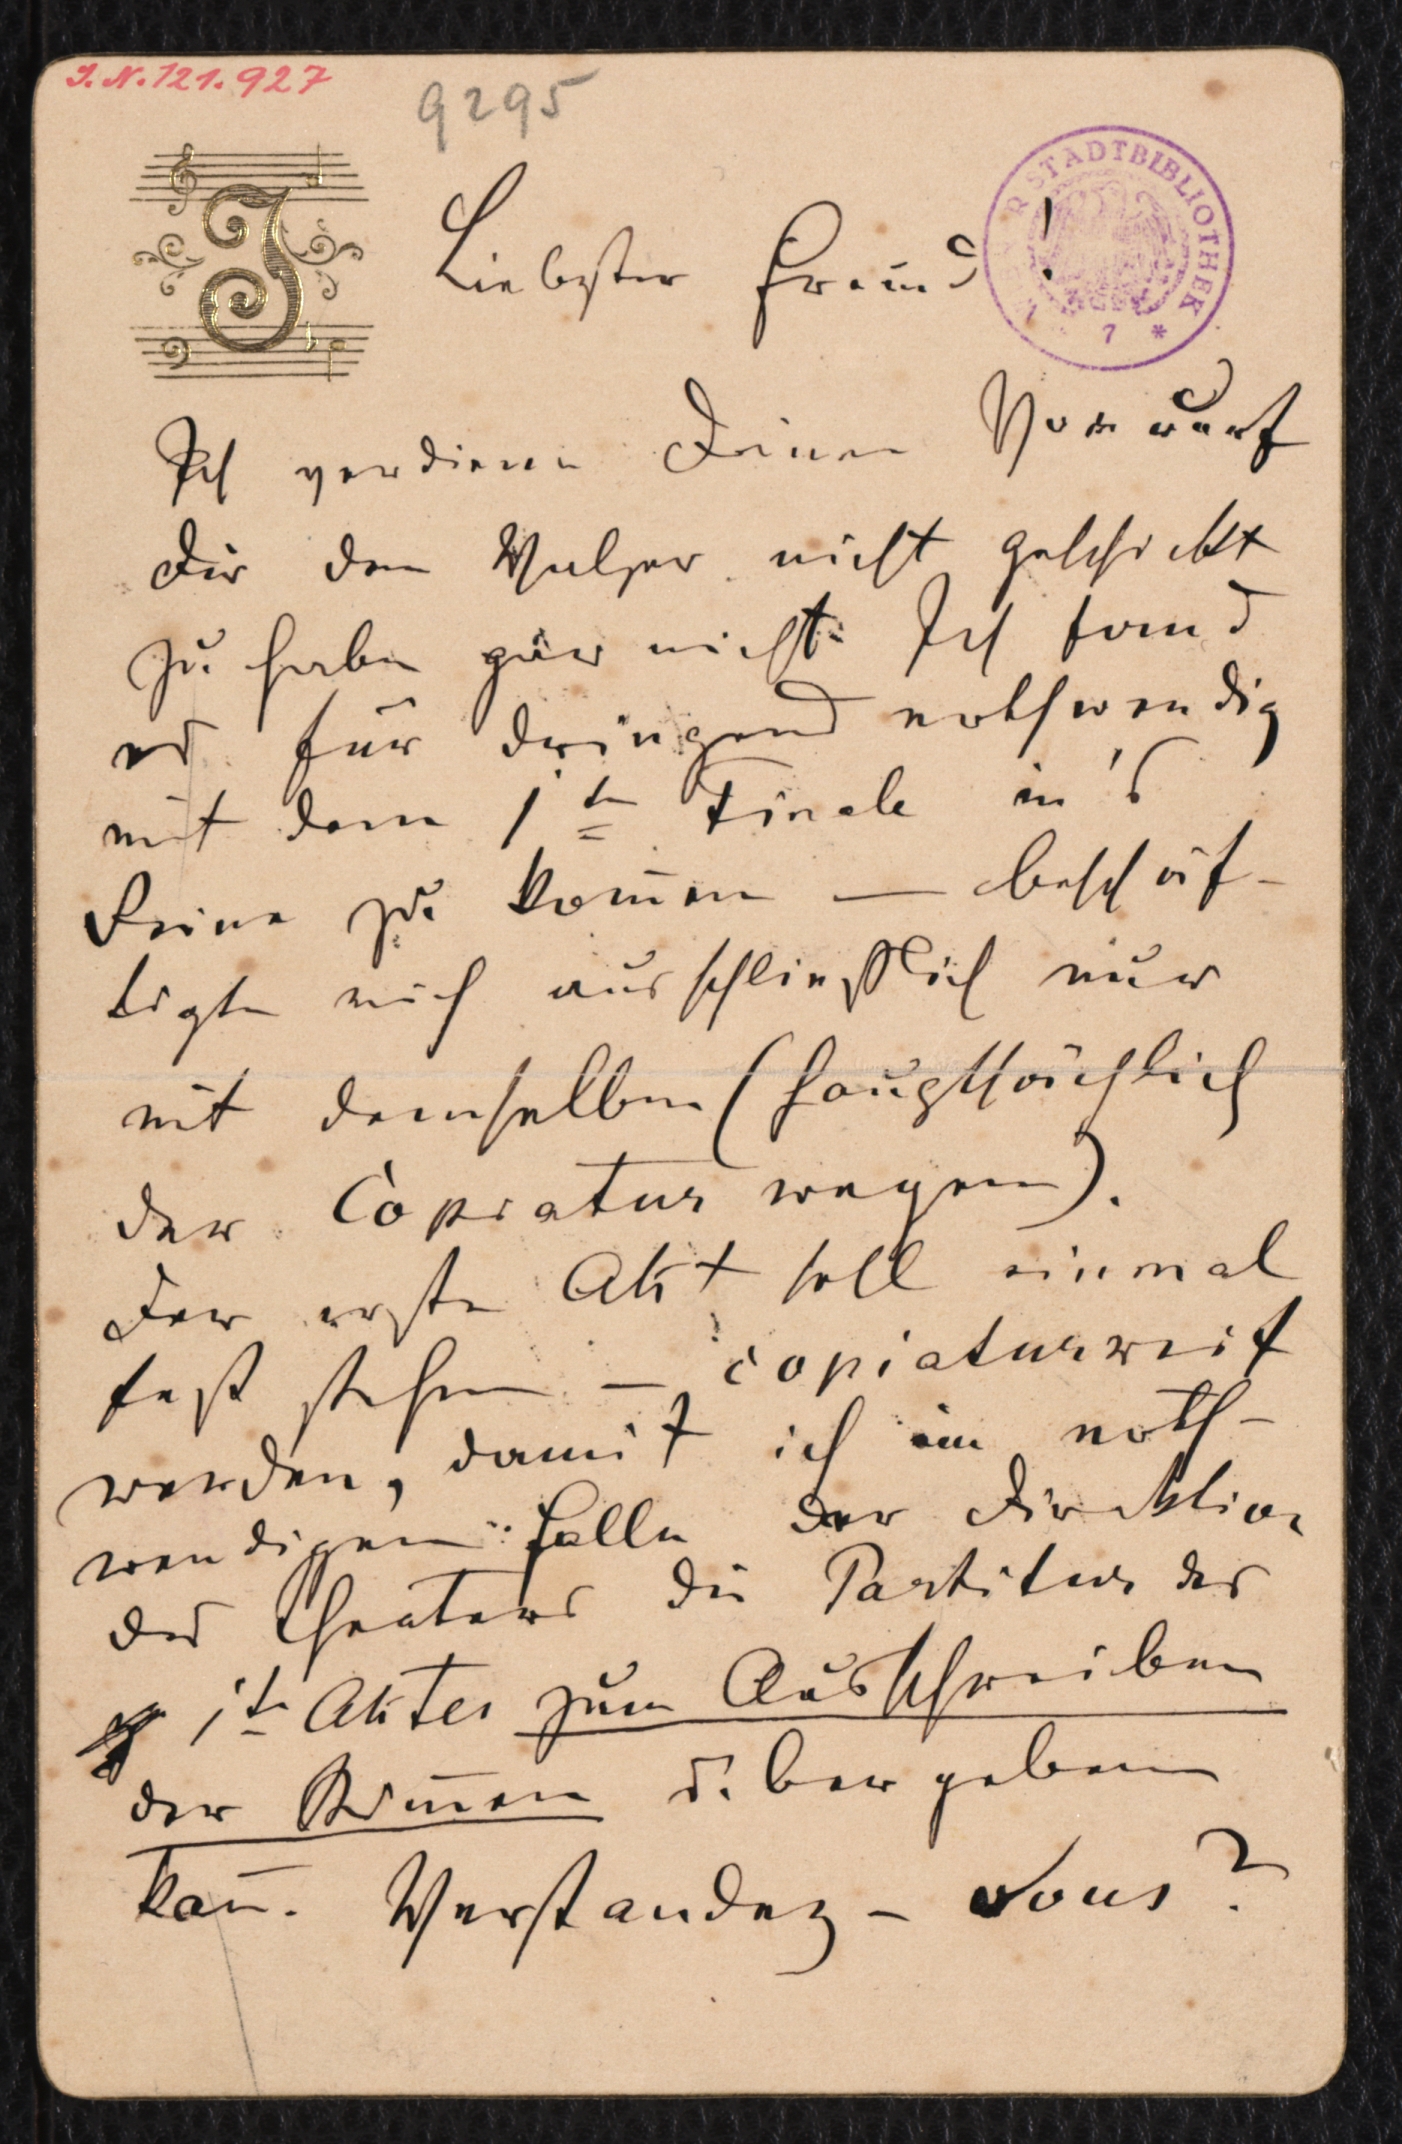 I. N. 121.927
9295
J
STADTBIBLIOTHEK
7 *
Liebster Freund!
Ich verdiene Deinen Vorwurf
Dir den Walzer nicht geschickt
zu haben gar nicht. Ich fand
es für dringend nothwendig
mit dem 1ten Finale in's
Reine zu kom̅en — beschäf-
tigte mich ausschließlich nur
mit demselben (hauptsächlich
der Copiatur wegen).
Der erste Akt soll einmal
fest stehen — copiaturreif
werden, damit ich im noth-
wendigen Falle der Direktion
des Theaters die Partitur des
1ten Aktes zum Ausschreiben
der Stim̅en übergeben
kan̅. Verstandez - vous?